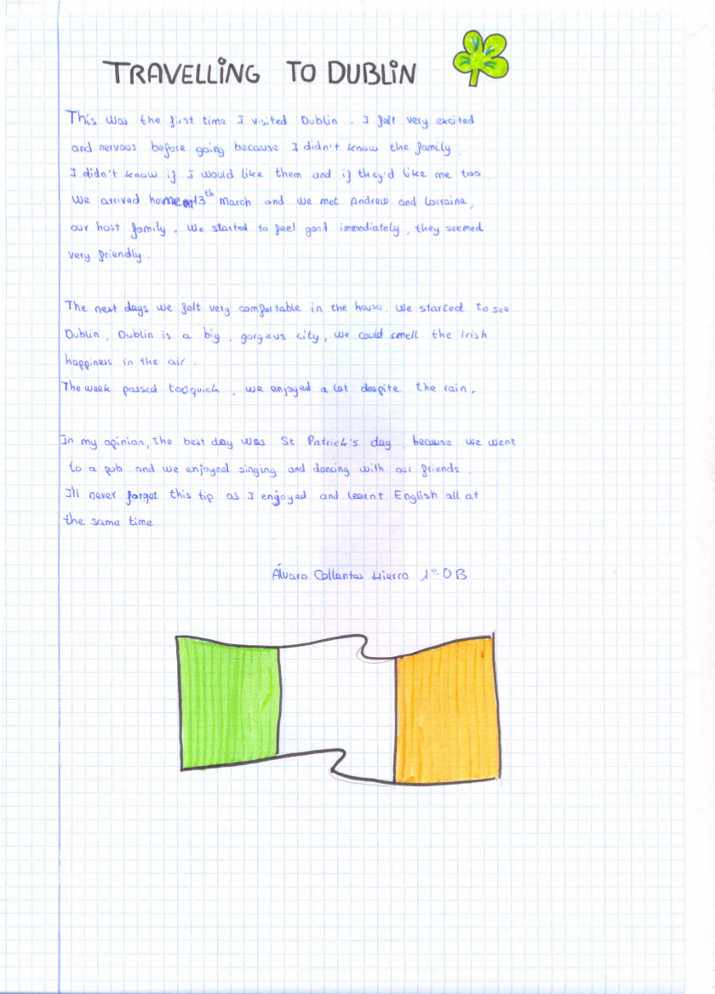 TRAVELLING TO DUBLIN
This was the first time I visited Dublin. I felt very excited
and nervous before going because I didn't know the family.
I didn't know if I would like them and if they'd like me too.
We arrived home on 13th March and we met Andrew and Lorraine,
our host family. We started to feel good immediately, they seemed
very friendly.
The next days we felt very comfortable in the house. We started to see
Dublin, Dublin is a big, gorgeus city, we could smell the Irish
happiness in the air.
The week passed too quick, we enjoyed a lot despite the rain.
In my opinion, the best day was St Patrick's day, because we went
to a pub and we enjoyed singing and dancing with our friends.
I'll never forget this tip as I enjoyed and learnt English all at
the same time
Álvaro Collantes Hierro 1º OB